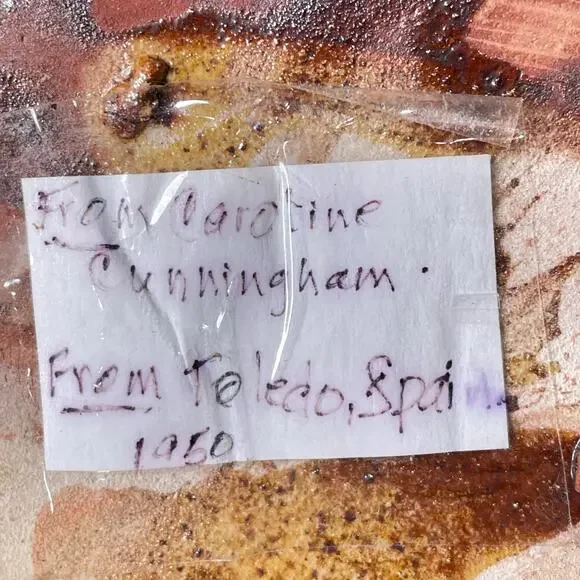 From Caroline
Cunningham.
From Toledo, Spain
1950